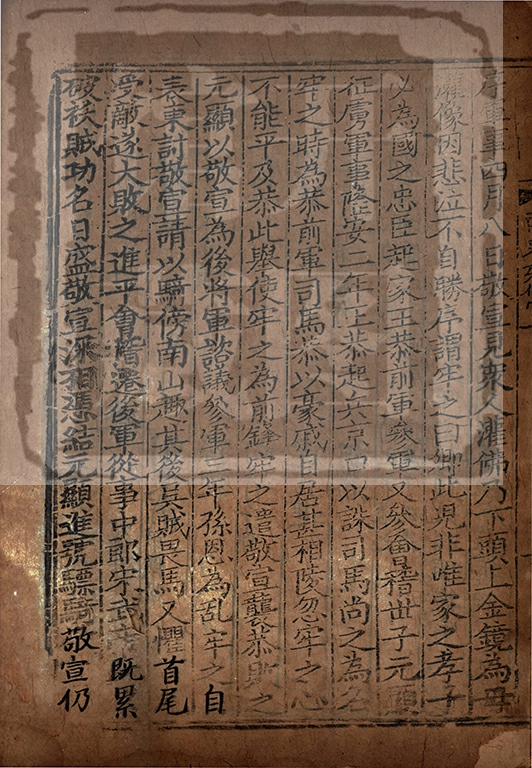 序軍事四月八日敬宣見衆人灌佛乃下頭上金鏡為母
灌像因悲泣不自勝序謂牢之曰卿此兒非唯家之孝子
必為國之忠臣起家王恭前軍參軍又參會稽世子元顯
征虜軍事隆安二年王恭起兵京口以誅司馬尚之為名
牢之時為恭前軍司馬恭以豪戚自居甚相陵忽牢之心
不能平及恭此舉使牢之為前鋒牢之遣敬宣襲恭敗之
元顯以敬宣為後將軍諮議參軍三年孫恩為亂牢之自
表東討敬宣請以騎傍南山趣其後吳賊畏馬又懼首尾
受敵遂大敗之進平會稽遷後軍從事中郎宋武帝既累
破祅賊功名日盛敬宣深相憑結元顯進號驃騎敬宣仍